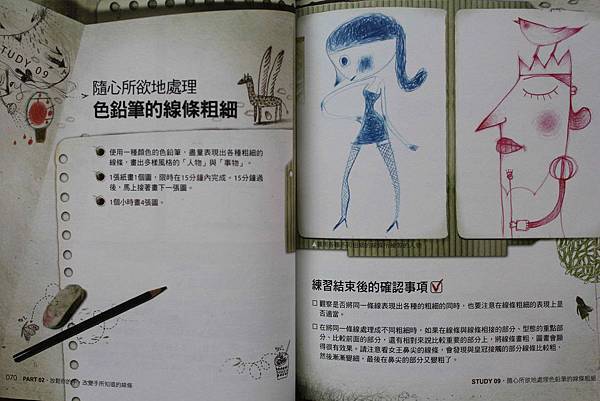 STUDY 09
隨心所欲地處理
色鉛筆的線條粗細
使用一種顏色的色鉛筆，適量表現出各種粗細的
線條，畫出多樣風格的「人物」與「事物」。
1張紙畫1個圖，限時在15分鐘內完成。15分鐘過
後，馬上接著畫下一張圖。
1個小時畫4張圖。
070 PART 02
改變手所知道的線條
練習結束後的確認事項
觀察是否將同一條線表現出各種的粗細的同時，也要注意在線條粗細的表現上是
否適當。
在將同一條線處理成不同粗細時，如果在線條與線條相接的部分、型態的重點部
分、比較前面的部分，還有相對來說比較重要的部分上，將線條畫粗，圖畫會顯
得很有效果。請注意看女王鼻尖的線條，會發現與皇冠接觸的部分線條比較粗，
然後漸漸變細，最後在鼻尖的部分又變粗了。
STUDY 09・隨心所欲地處理色鉛筆的線條粗細